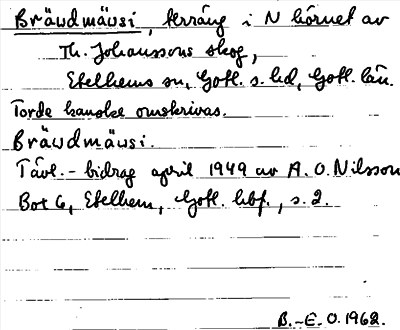 Bräudmäusi, terräng i N hörnet av
Th. Johanssons skog,
Etelhems sn, Gotl. s. hd, Gotl. län.
Torde kanske omskrivas.
Bräudmäusi.
Tävl.- bidrag april 1949 av A. O. Nilsson
Box 6, Etelhem, Gotl. hbf., s. 2.
B.-E. O. 1962.